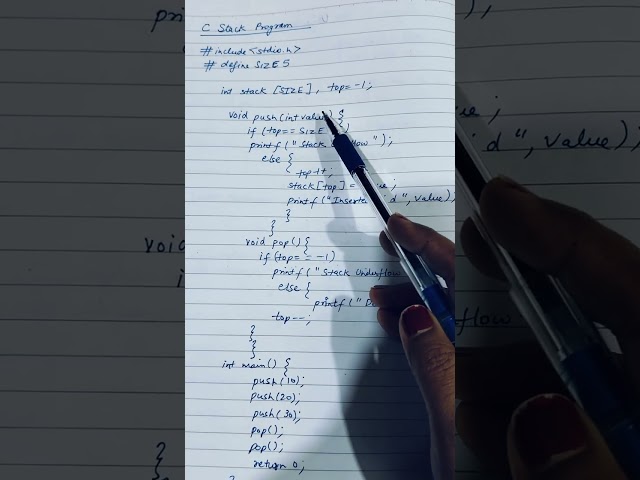 C Stack Program
#include<stdio.h>
# define SIZE 5
int stack [SIZE], top=-1;
void push(int value) {
if (top== SIZE
printf("Stack flow");
else {
top++;
stack[top] = ;
printf("Inserte d", value);
}
}
void pop() {
if (top== -1)
printf("Stack Underflow
else {
printf("D
top--;
}
}
int main() {
push(10);
push(20);
push(30);
pop();
pop();
return 0;
}